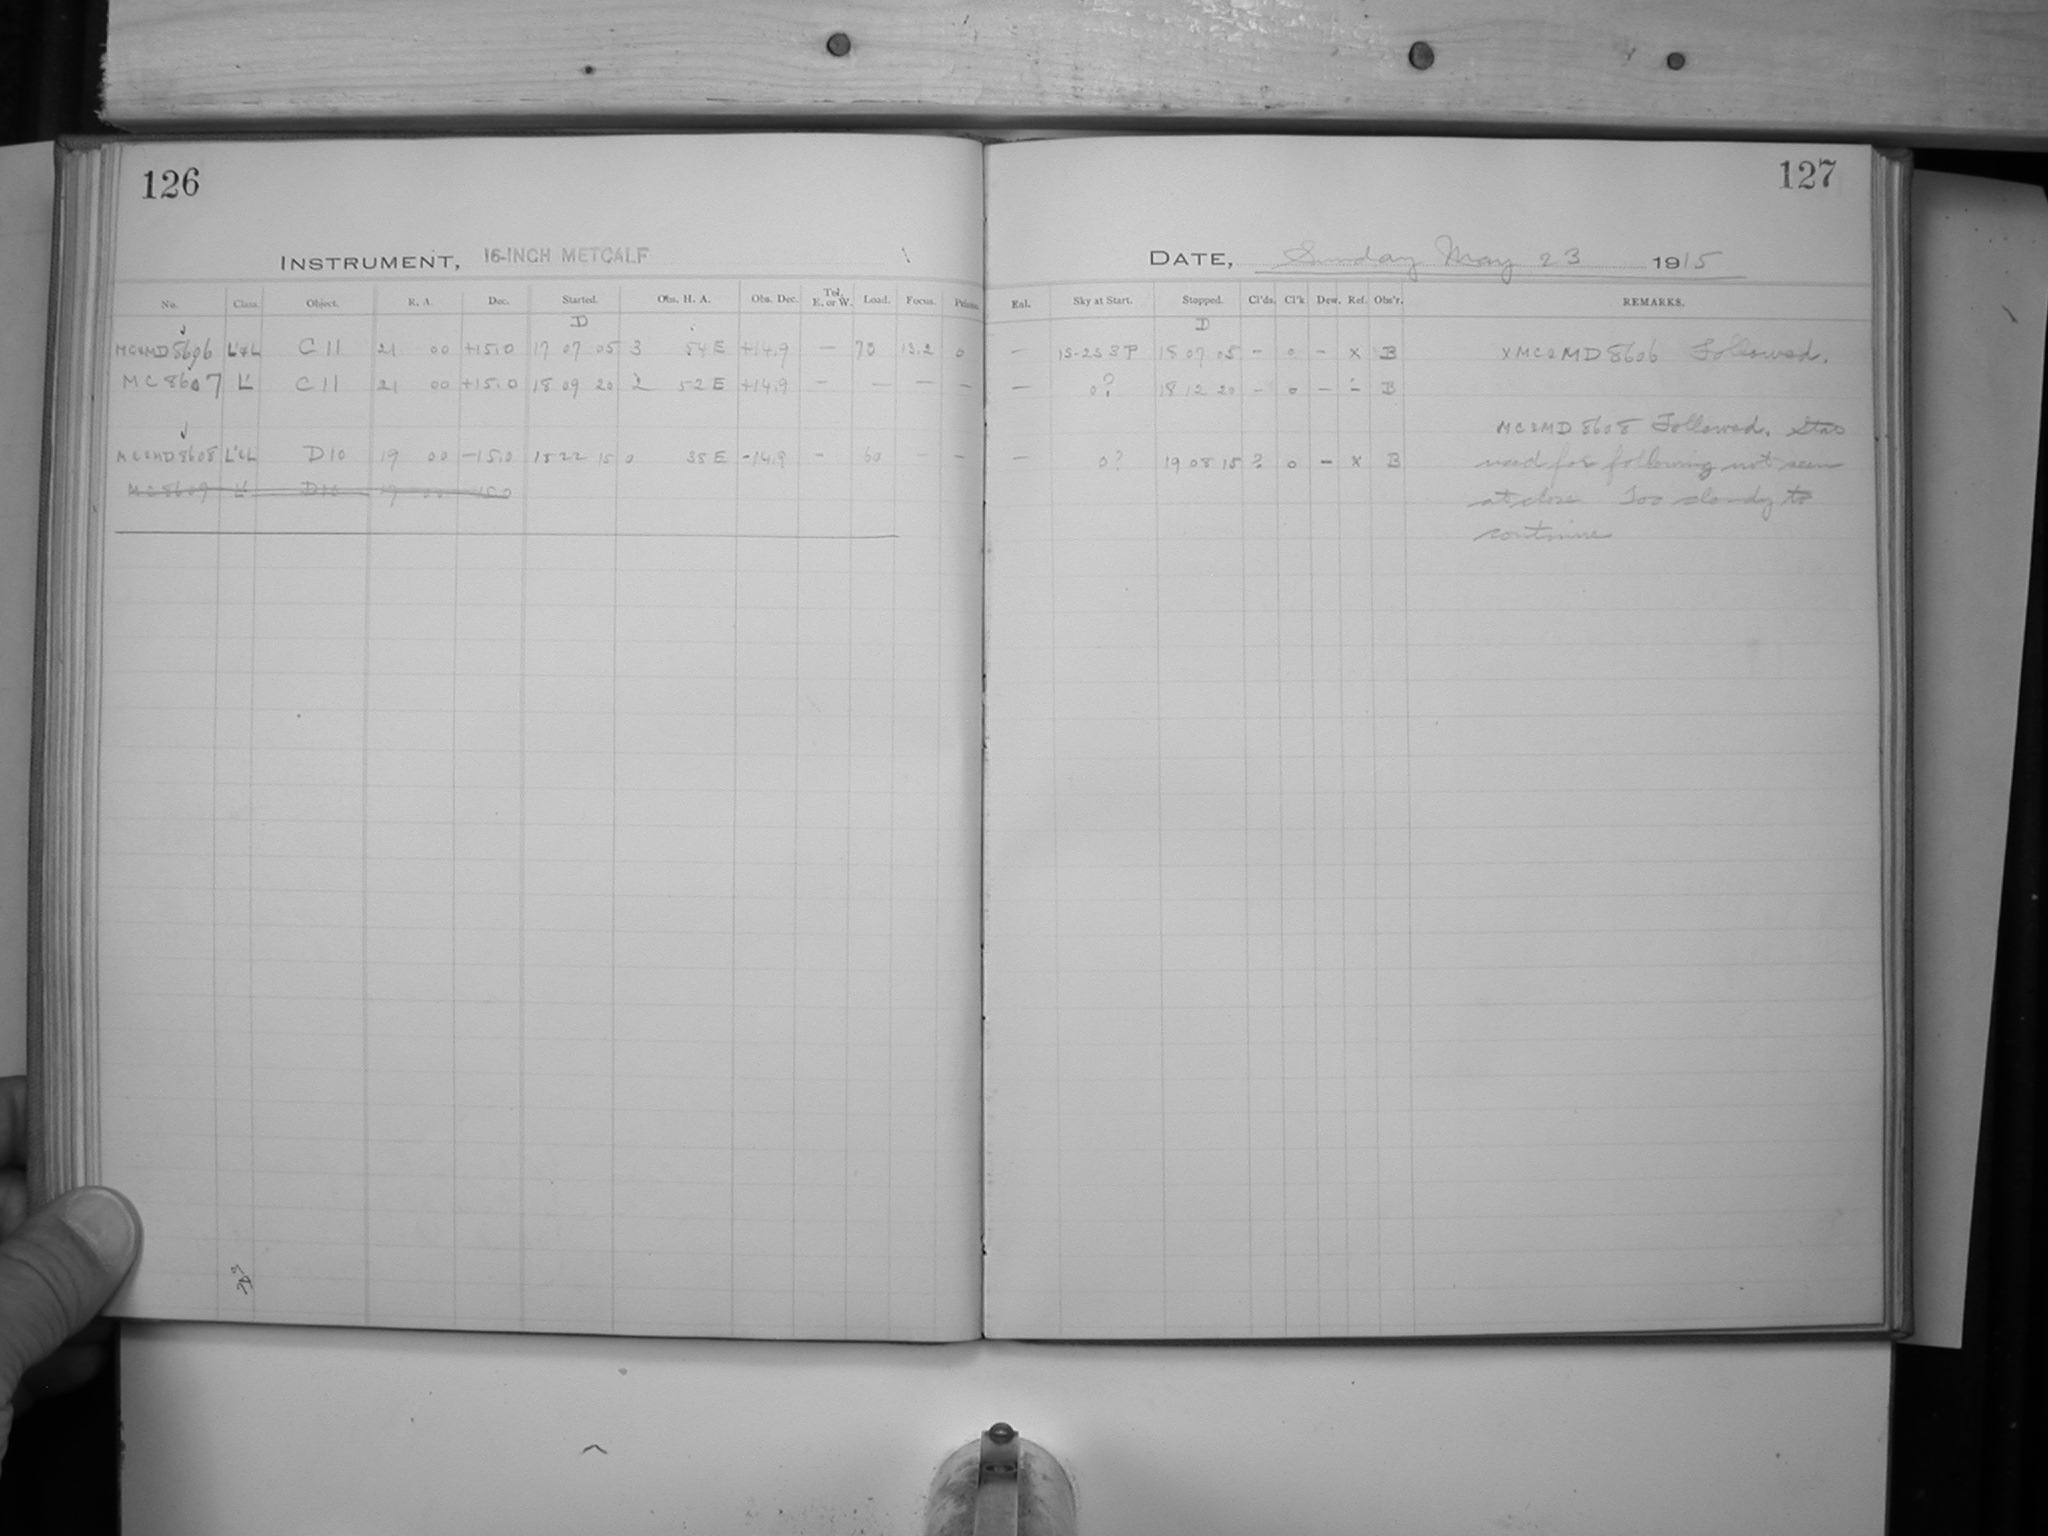 126
127
INSTRUMENT, 16-INCH METCALF
DATE, Sunday May 23 1915
No. Class. Object. R. A. Dec. Started. Obs. H. A. Obs. Dec. Tel. E. or W. Load. Focus. Prisms. Enl. Sky at Start. Stopped. Cl'ds. Cl'k Dew. Ref. Obs'r. REMARKS.
D D
MC&MD 8606 L'&L C 11 21 00 +15.0 17 07 05 3 54 E +14.9 — 73 13.2 0 — 18 07 05 – 0 – x B x MC&MD 8606 Followed.
MC 8607 L' C 11 21 00 +15.0 18 09 20 2 52 E +14.9 — — — — — 0? 18 12 20 – 0 – – B
MC&MD 8608 Followed. Star
MC&MD 8608 L'&L D 10 19 00 –15.0 18 22 15 0 38 E –14.9 – 60 – – — 0? 19 08 15 ? 0 – x B used for following not seen
MC 8609 L' D 10 19 00 –15.0 at close Too cloudy to
continue